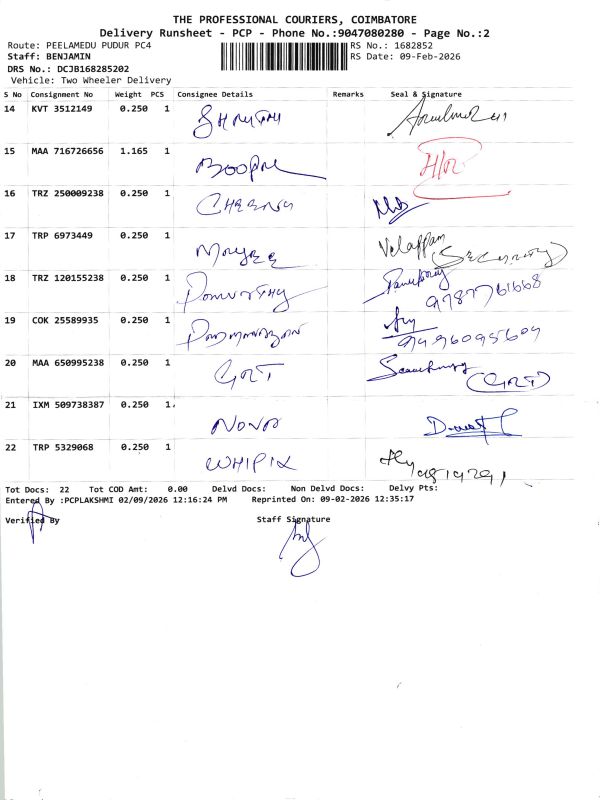 THE PROFESSIONAL COURIERS, COIMBATORE
Delivery Runsheet - PCP - Phone No.:9047080280 - Page No.:2
Route: PEELAMEDU PUDUR PC4 RS No.: 1682852
Staff: BENJAMIN RS Date: 09-Feb-2026
DRS No.: DCJB168285202
Vehicle: Two Wheeler Delivery
S No Consignment No Weight PCS Consignee Details Remarks Seal & Signature
14 KVT 3512149 0.250 1 SHRUTHI
15 MAA 716726656 1.165 1 H/O
16 TRZ 250009238 0.250 1
17 TRP 6973449 0.250 1 Velappan (Security)
18 TRZ 120155238 0.250 1 9787761668
19 COK 25589935 0.250 1 9496095604
20 MAA 650995238 0.250 1 GRT (GRT)
21 IXM 509738387 0.250 1 NOVA
22 TRP 5329068 0.250 1 WHIPIX
Tot Docs: 22 Tot COD Amt: 0.00 Delvd Docs: Non Delvd Docs: Delvy Pts:
Entered By :PCPLAKSHMI 02/09/2026 12:16:24 PM Reprinted On: 09-02-2026 12:35:17
Verified By Staff Signature